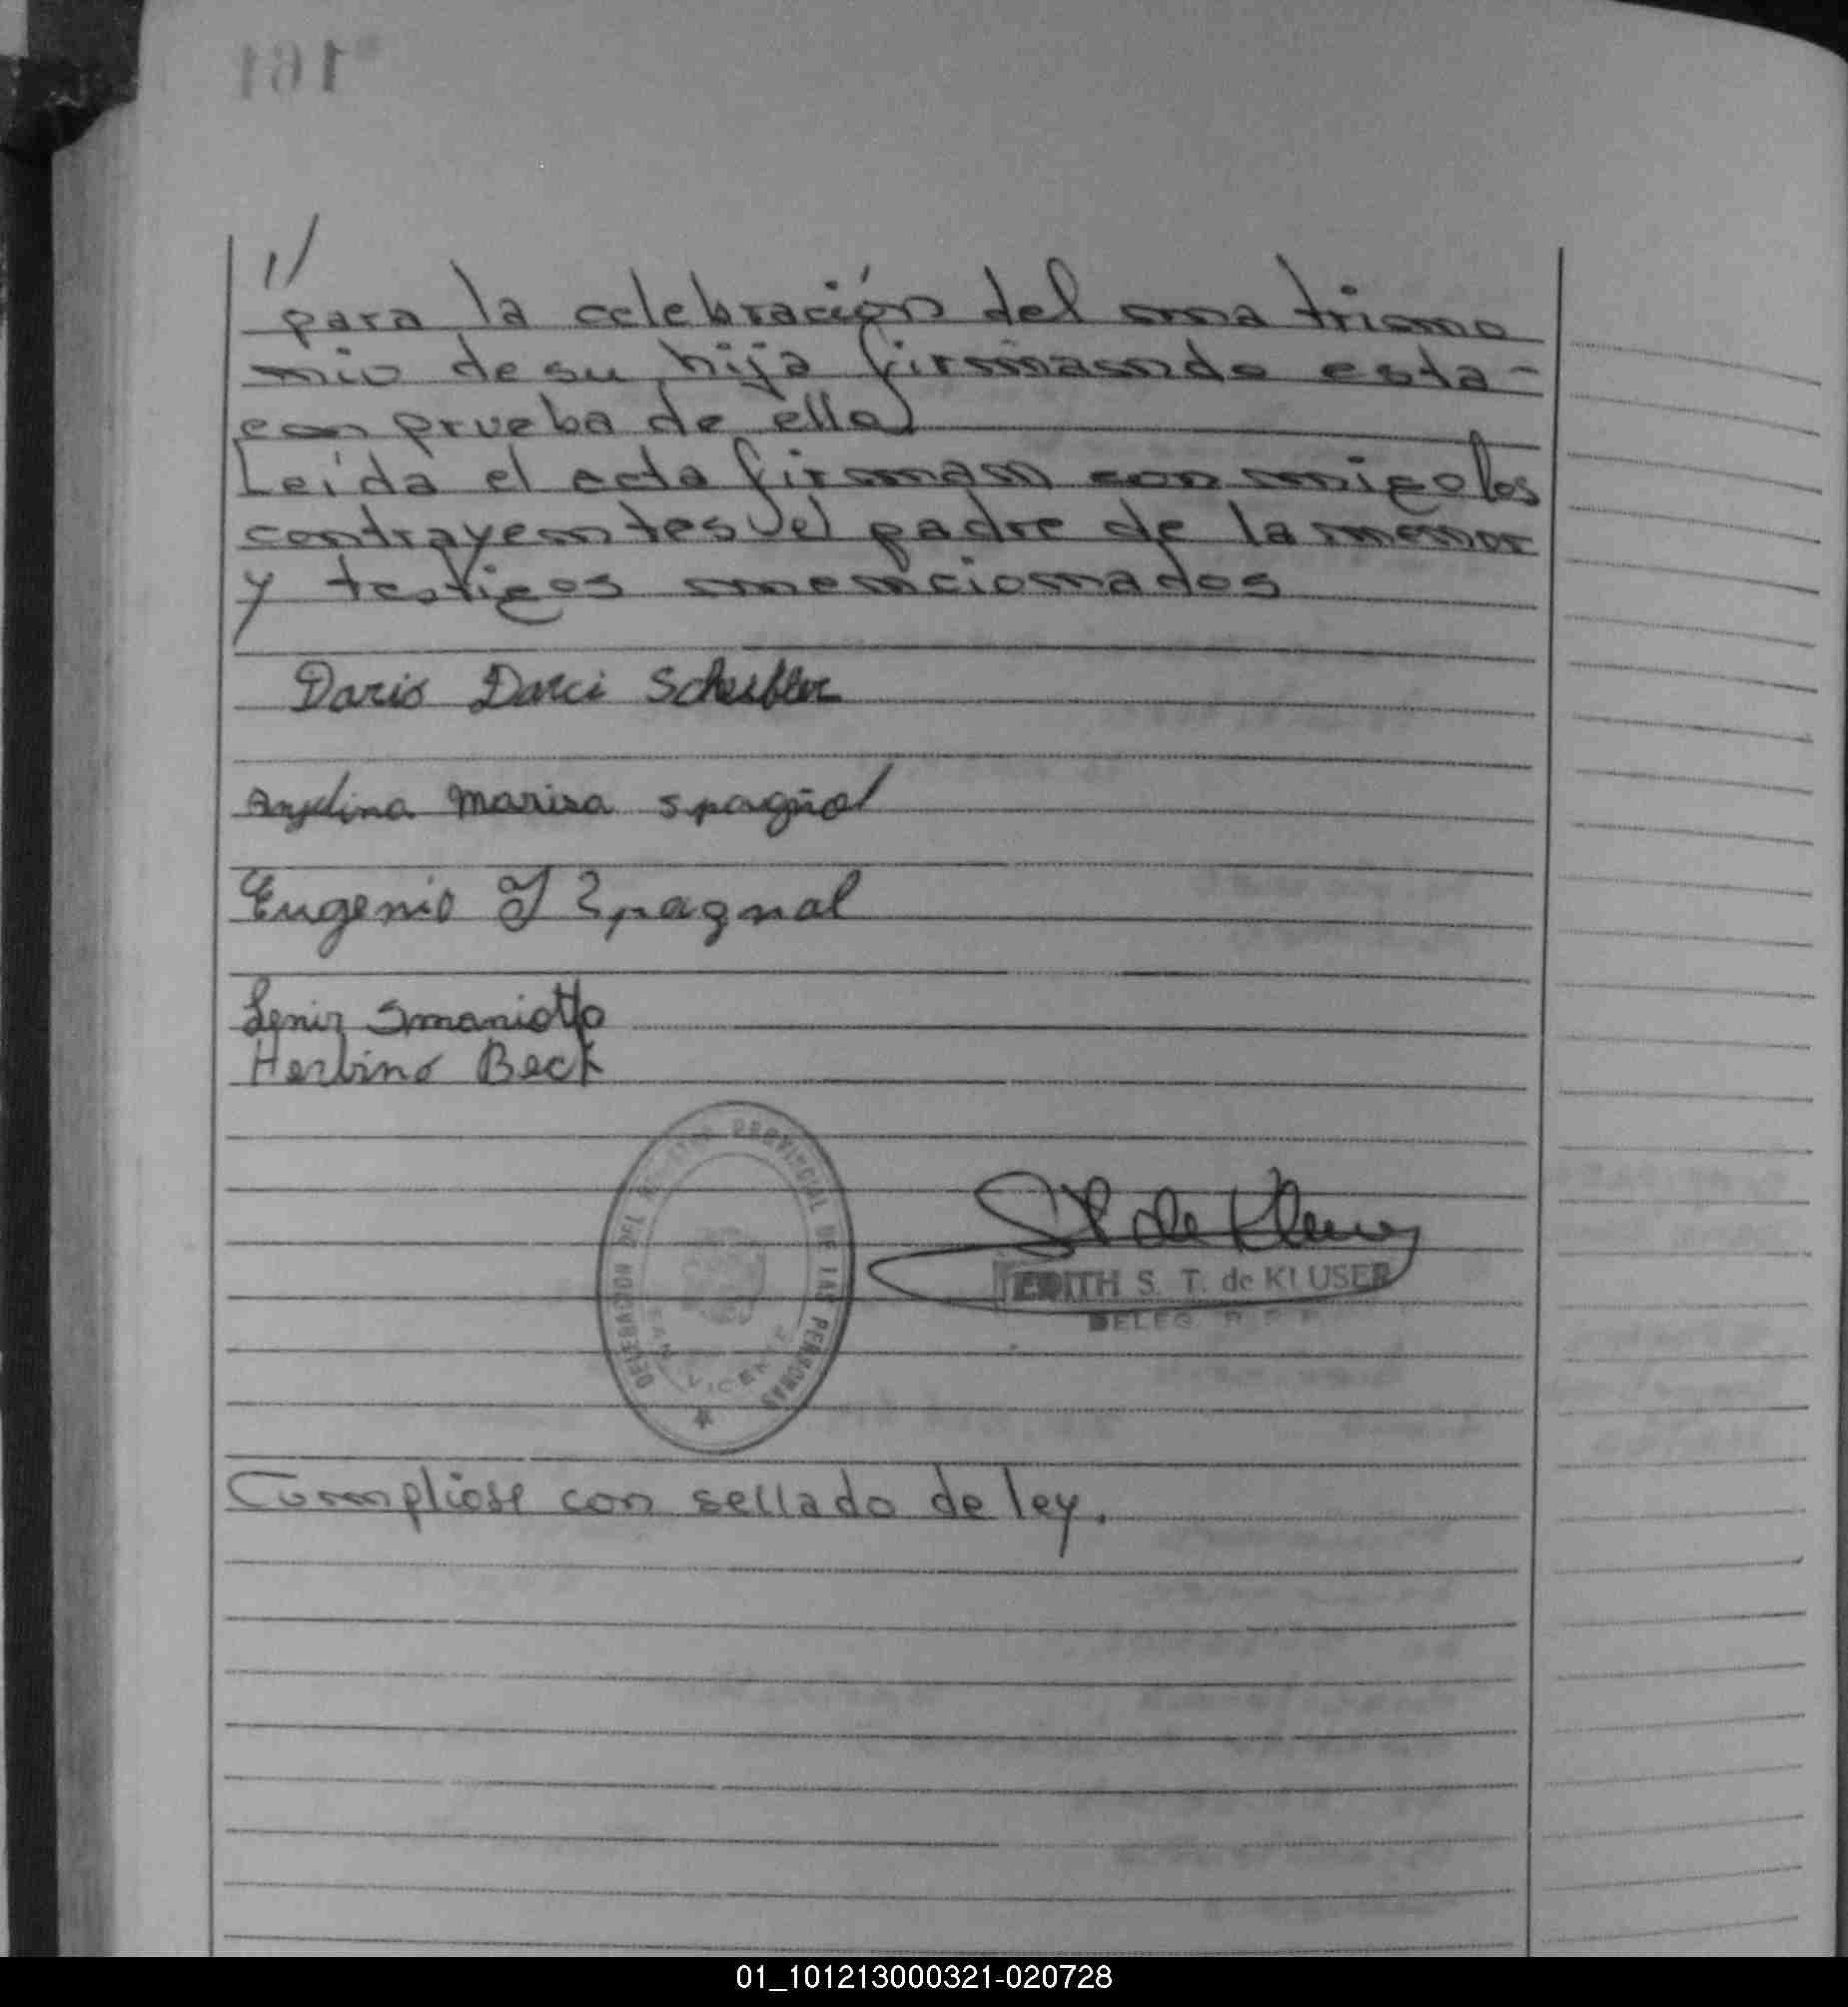 161
//
para la celebración del matrimo
nio de su hija firmando esta-
en prueba de ello
Leída el acta firman conmigo los
contrayentes el padre de la menor
y testigos mencionados
Dario Darci Scheibler
Angelina Marisa Spagñol
Eugenio J Spagnal
Lenir Smaniotto
Herbino Beck
DELEGACION DEL REGISTRO PROVINCIAL DE LAS PERSONAS
SAN VICENTE
de Kluser
EDITH S. T. de KLUSER
DELEG. R. P. P.
Cumpliose con sellado de ley.
01_101213000321-020728